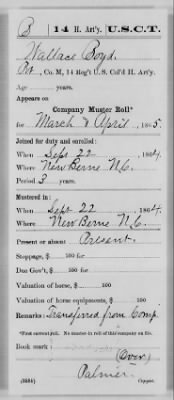 B 14 H. Art'y. U.S.C.T.
Wallace Boyd.
Pvt, Co. M, 14 Reg't U. S. Col'd H. Art'y.
Age years.
Appears on
Company Muster Roll*
for March & April, 1865.
Joined for duty and enrolled:
When Sept. 22, 1864.
Where New Berne N.C.
Period 3 years.
Mustered in:
When Sept. 22, 1864.
Where New Berne N.C.
Present or absent Present.
Stoppage, $ 100 for
Due Gov't, $ 100 for
Valuation of horse, $ 100
Valuation of horse equipments, $ 100
Remarks: Transferred from Comp.
*First current roll. No muster-in roll of this company on file.
Book mark:
(Over)
Palmer.
Copyist.